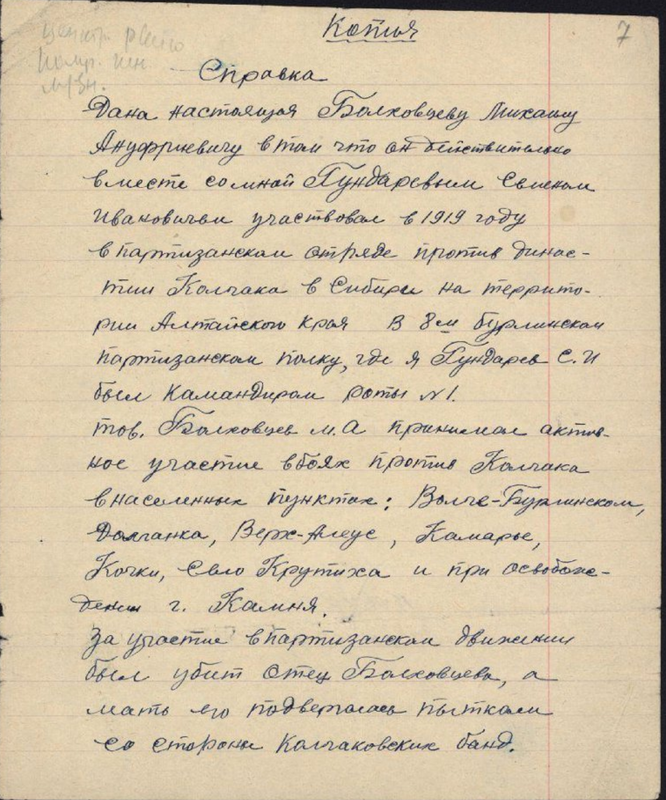 Копия
7
центр.
Справка
Дана настоящая Болховцеву Михаилу
Ануфриевичу в том что он действительно
вместе со мной Гундаревым Семеном
Ивановичем участвовал в 1919 году
в партизанском отряде против динас-
тии Колчака в Сибири на террито-
рии Алтайского края В 8м бурлинском
партизанском полку, где я Гундарев С.И
был камандиром роты №1.
тов. Болховцев М.А принимал актив-
ное участие в боях против Колчака
в населенных пунктах: Волче-Бурлинском,
Долганка, Верх-Алеус, Камарье,
Кочки, село Крутиха и при освобож-
дении г. Камня.
За участие в партизанском движении
был убит отец Болховцева, а
мать его подвергалась пыткам
со стороны колчаковских банд.